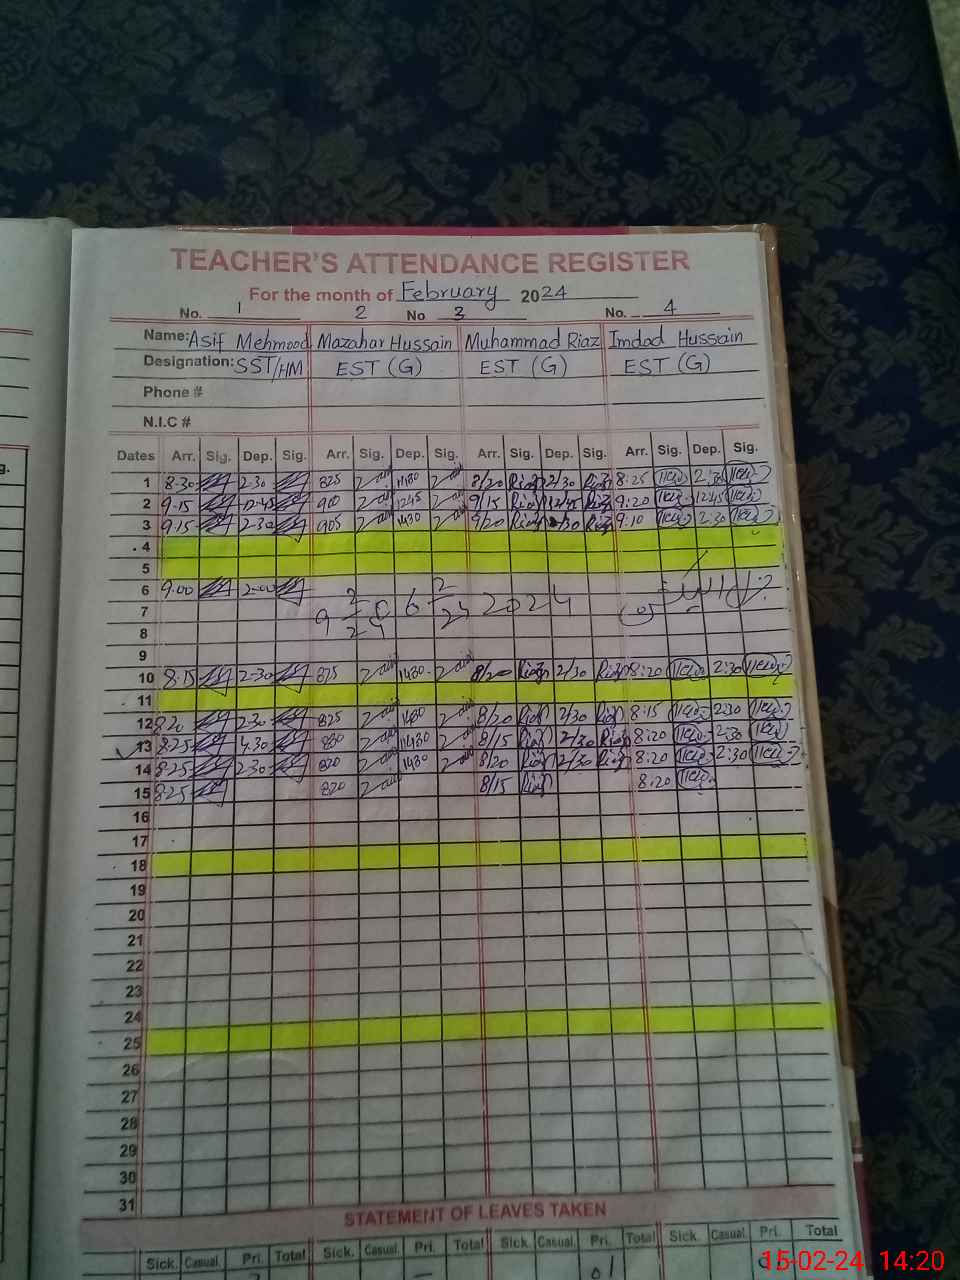 TEACHER'S ATTENDANCE REGISTER
For the month of February 2024
No. 1 2 No 3 No. 4
Name: Asif Mehmood Mazahar Hussain Muhammad Riaz Imdad Hussain
Designation: SST/HM EST (G) EST (G) EST (G)
Phone #
N.I.C #
g.
Dates Arr. Sig. Dep. Sig. Arr. Sig. Dep. Sig. Arr. Sig. Dep. Sig. Arr. Sig. Dep. Sig.
1 8-30 2-30 825 1430 8/20 Riaz 2/30 Riaz 8:25 2:30
2 9-15 12-45 900 1245 9/15 Riaz 12/45 Riaz 9:20 12:45
3 9.15 2-30 905 1430 9/20 Riaz 2/30 Riaz 9:10 2:30
4
5
6 9.00 2-00
7 2024
8
9
10 8.15 2-30 825 1430 8/20 Riaz 2/30 Riaz 8:20 2:30
11
12 8.20 2-30 825 1430 8/20 Riaz 2/30 Riaz 8:15 2:30
13 8.25 4.30 830 1430 8/15 Riaz 2/30 Riaz 8:20 2:30
14 8.25 2-30 820 1430 8/20 Riaz 2/30 Riaz 8:20 2:30
15 8.25 820 8/15 Riaz 8:20
16
17
18
19
20
21
22
23
24
25
26
27
28
29
30
31
STATEMENT OF LEAVES TAKEN
Sick. Casual. Pri. Total Sick. Casual. Pri. Total Sick. Casual. Pri. Total Sick. Casual. Pri. Total
15-02-24 14:20